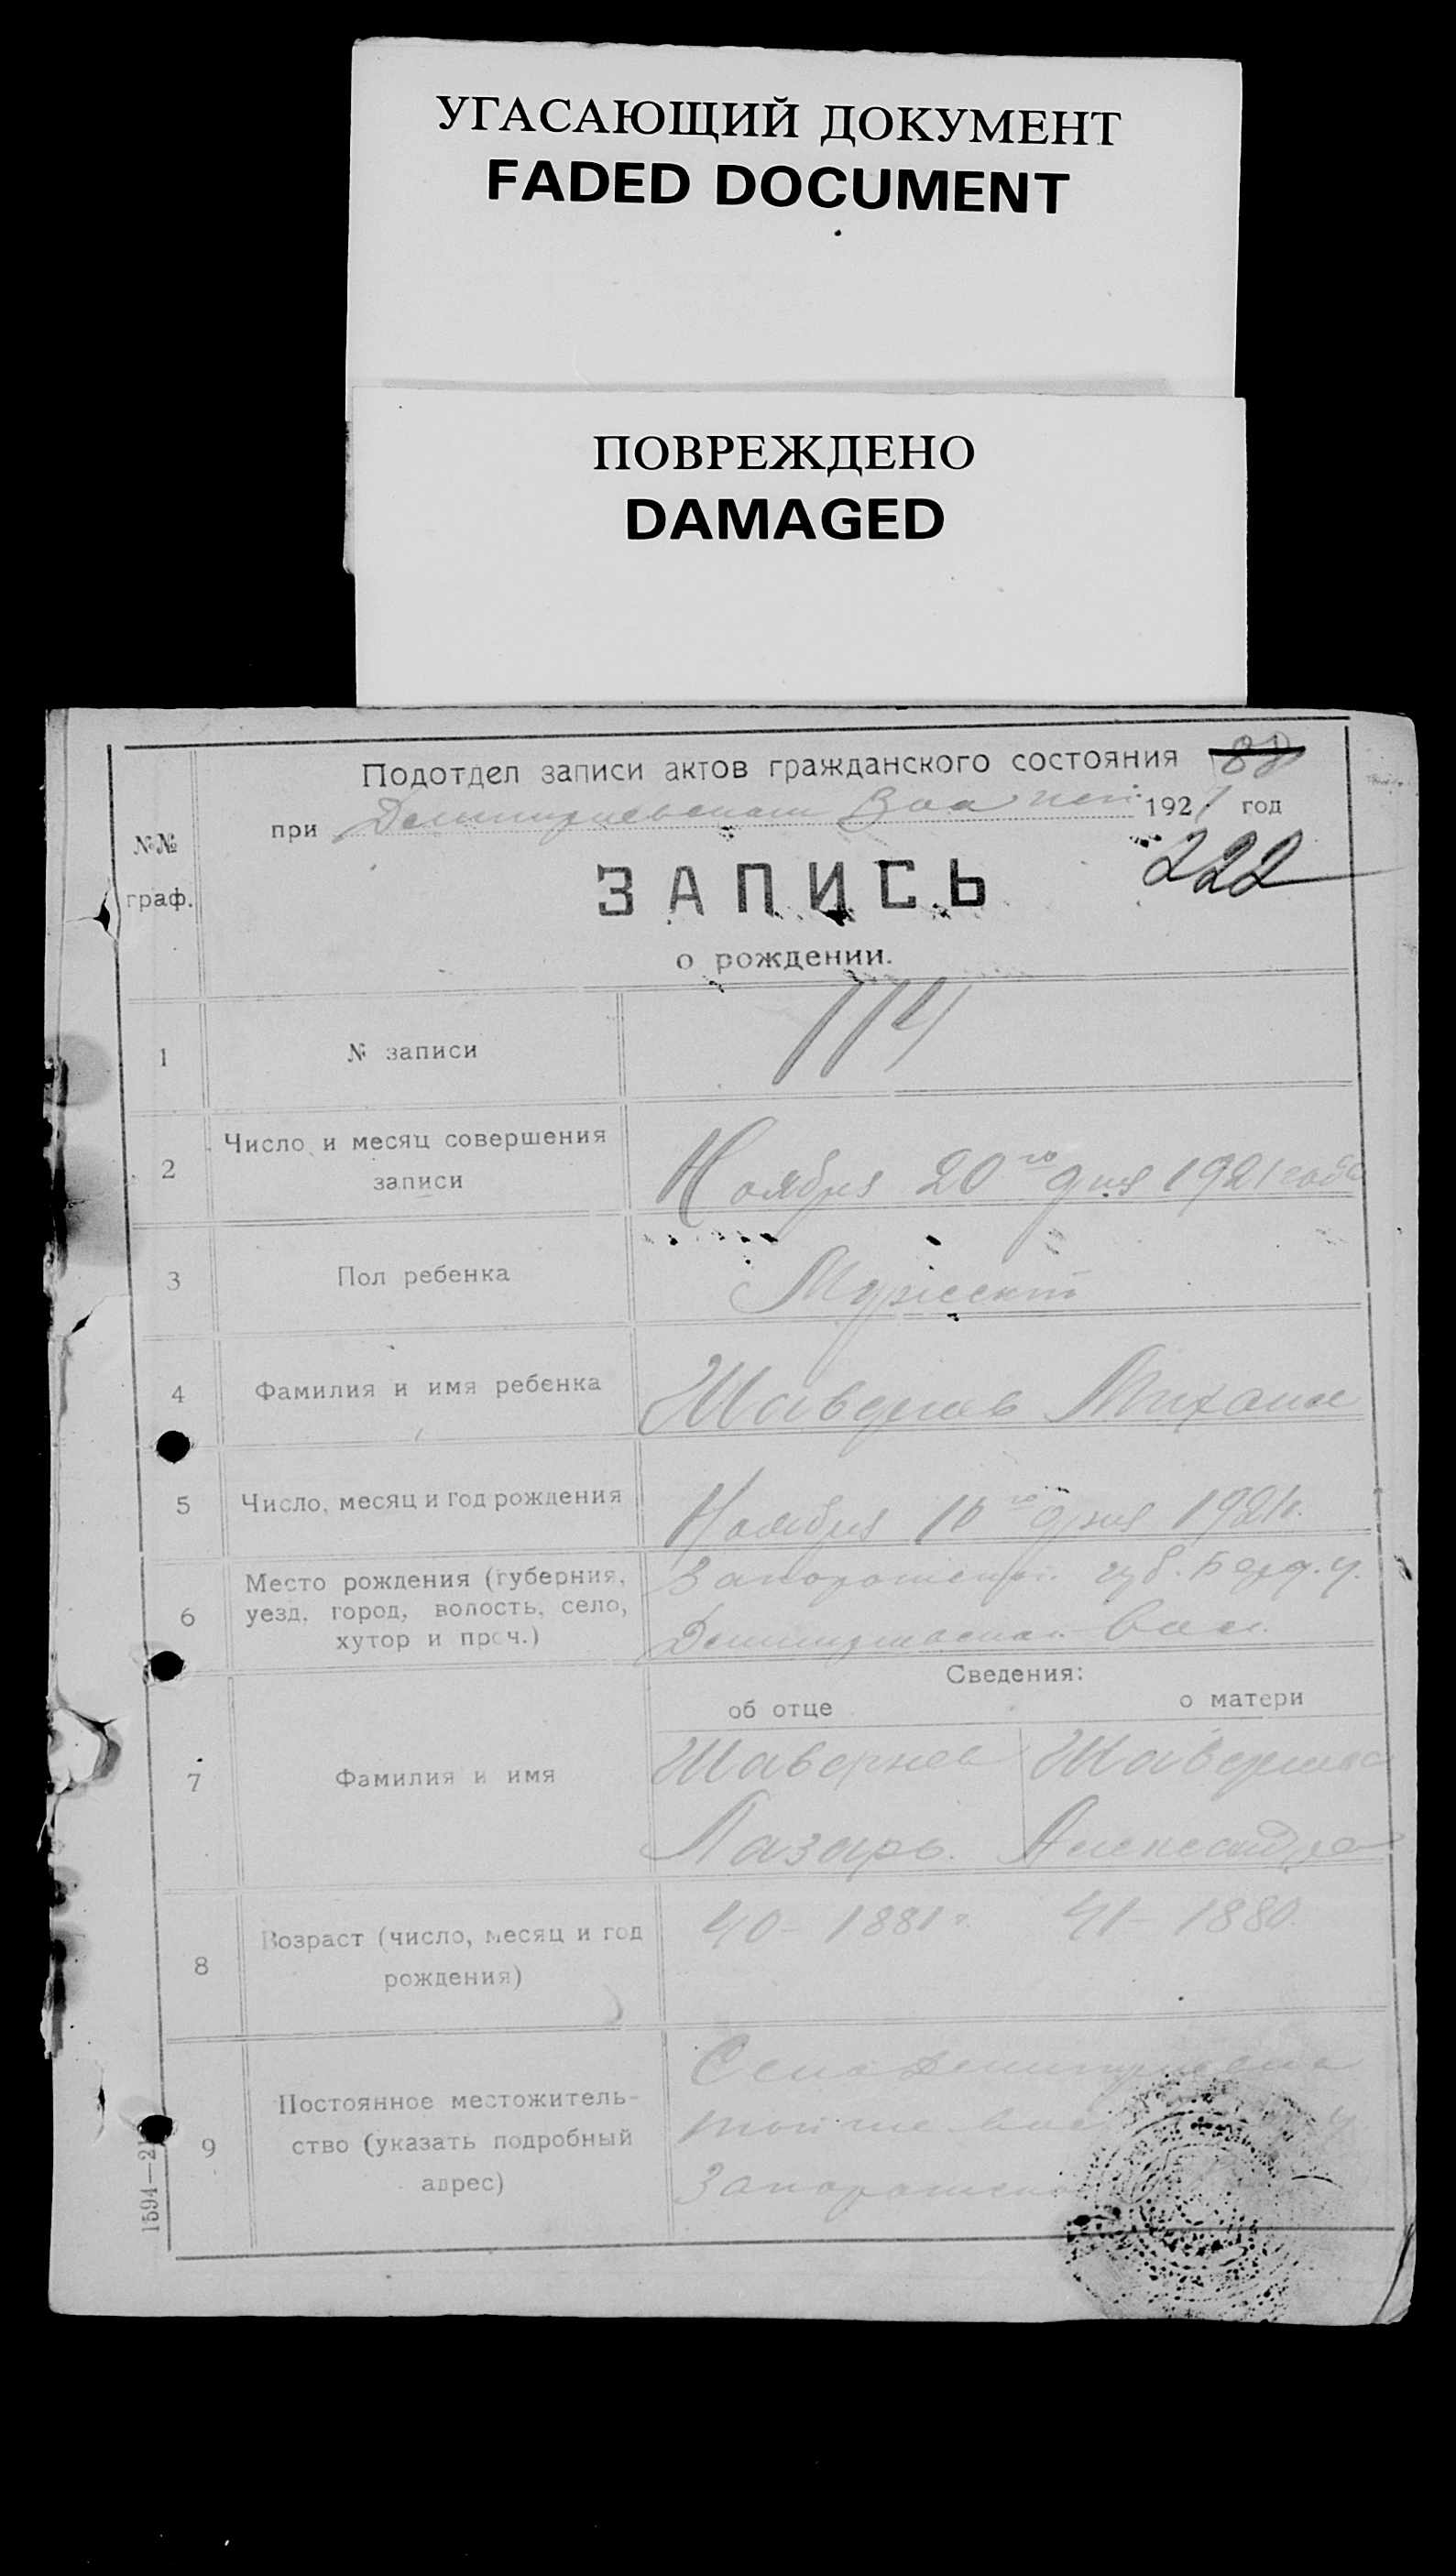 УГАСАЮЩИЙ ДОКУМЕНТ
FADED DOCUMENT
ПОВРЕЖДЕНО
DAMAGED
Подотдел записи актов гражданского состояния
при 1921 год
№№
граф.
222
ЗАПИСЬ
о рождении.
1 № записи 114
2 Число и месяц совершения
записи
Ноября 20го дня 1921 года
3 Пол ребенка Мужской
4 Фамилия и имя ребенка Михаил
5 Число, месяц и год рождения Ноября 10го дня 1921г.
6 Место рождения (губерния,
уезд, город, волость, село,
хутор и проч.)
Запорожской губ. Берд. у.
Сведения:
об отце о матери
7 Фамилия и имя
Лазарь. Александра
8 Возраст (число, месяц и год
рождения)
40 - 1881 г. 41 - 1880.
9 Постоянное местожитель-
ство (указать подробный
адрес)
Село
той же
1594—21